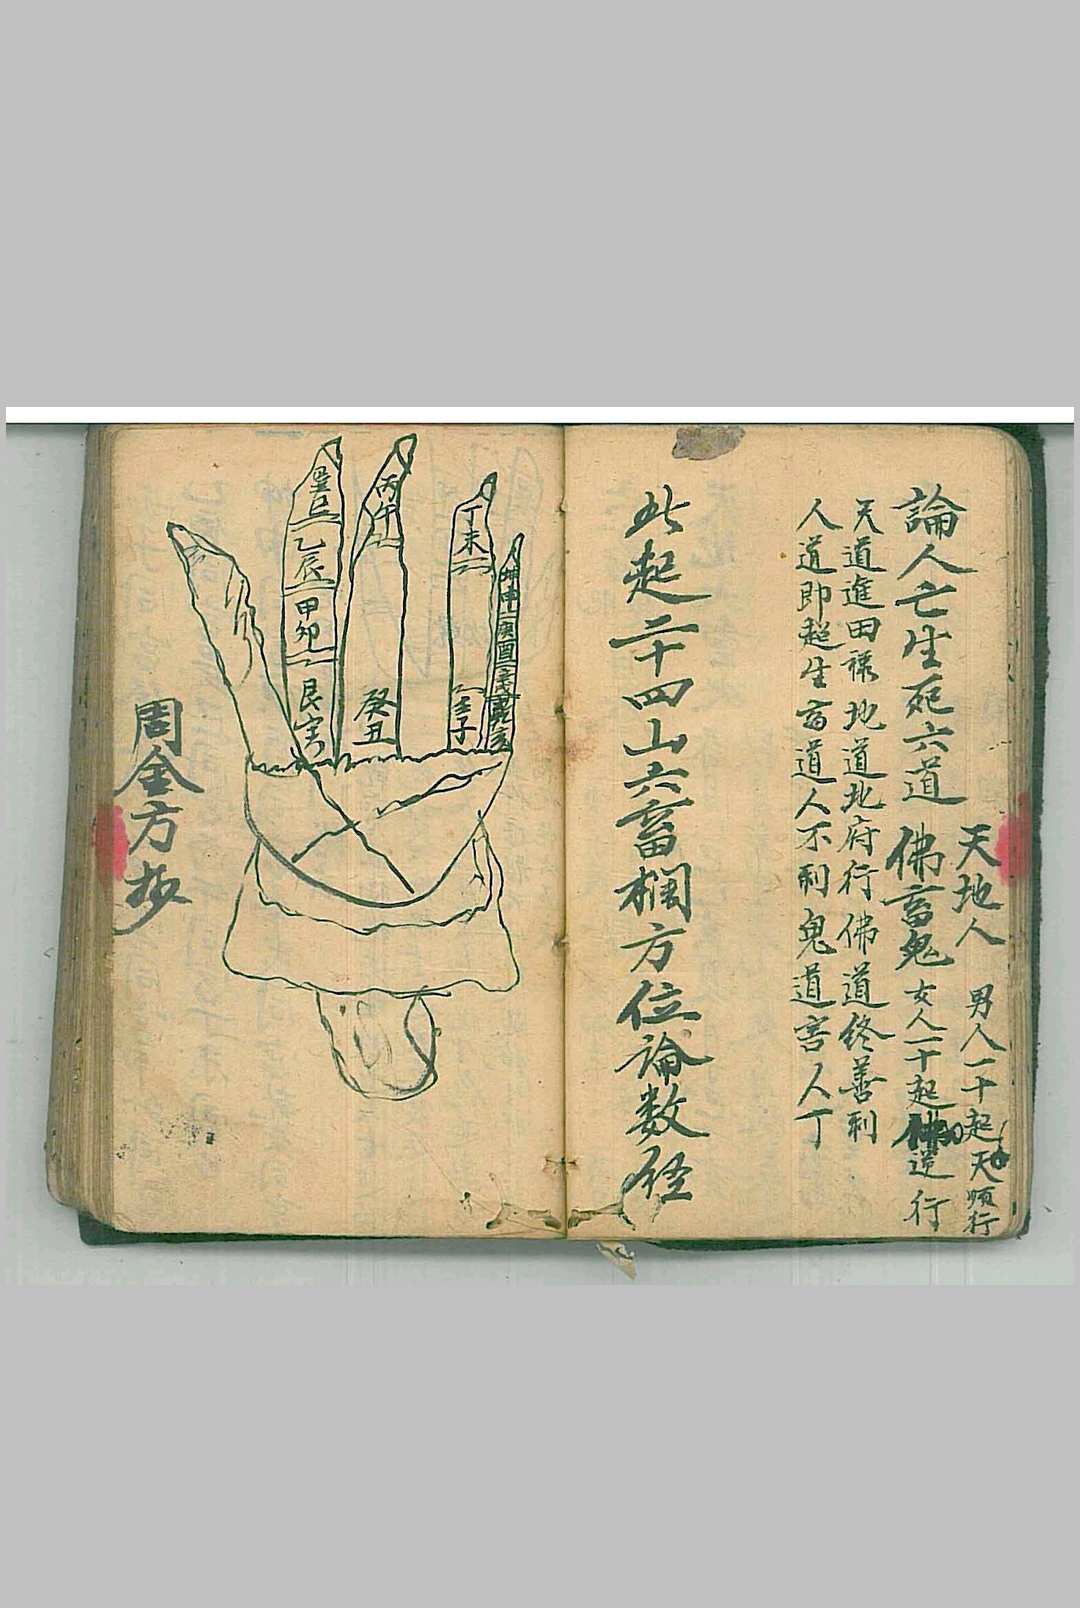 論人亡生死六道
天地人 男人一十起天順行
佛畜鬼 女人一十起佛逆行
天道進田祿地道地府行佛道終善利
人道即超生畜道人不利鬼道害人丁
此起二十四山六畜欄方位論数経
巽巳
乙辰
甲卯
艮寅
丙午
癸丑
丁未
壬子
坤申
庚酉
辛戌
乾亥
周金方抄